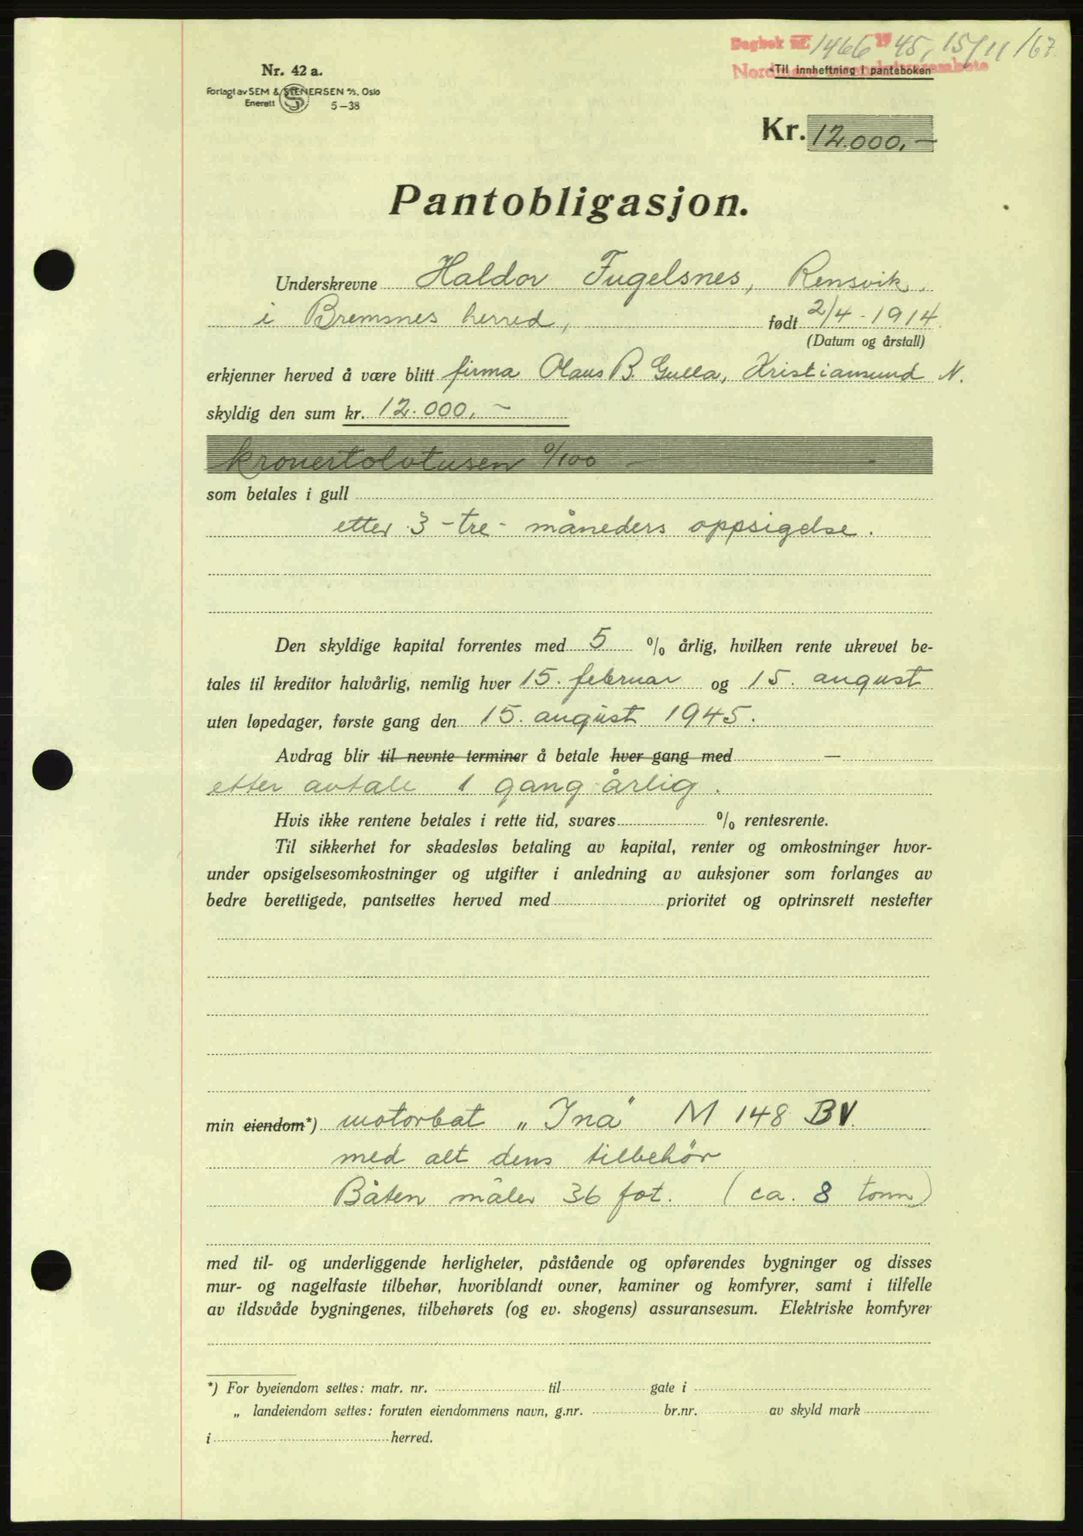 Dagbok nr. 1466 19 45, 15/11 /67
Til innheftning i panteboken
Nr. 42 a.
Forlagt av SEM & STENERSEN A/S, Oslo
Enerett S 5-38
Kr. 12.000.-
Pantobligasjon.
Underskrevne Haldor Fugelsnes, Rensvik,
i Bremsnes herred, født 2/4-1914.
(Datum og årstall)
erkjenner herved å være blitt firma Olaus B. Gulla, Kristiansund N.
skyldig den sum kr. 12.000.-
kronertolvtusen 0/100 -
som betales i gull
etter 3 - tre - måneders oppsigelse.
Den skyldige kapital forrentes med 5 % årlig, hvilken rente ukrevet be-
tales til kreditor halvårlig, nemlig hver 15. februar og 15. august
uten løpedager, første gang den 15. august 1945.
Avdrag blir til nevnte terminer å betale hver gang med -
etter avtale 1 gang årlig.
Hvis ikke rentene betales i rette tid, svares % rentesrente.
Til sikkerhet for skadesløs betaling av kapital, renter og omkostninger hvor-
under opsigelsesomkostninger og utgifter i anledning av auksjoner som forlanges av
bedre berettigede, pantsettes herved med prioritet og optrinsrett nestefter
min eiendom*) motorbåt „Ina" M 148 BV.
med alt dens tilbehör
Båten måler 36 fot. (ca. 8 tonn)
med til- og underliggende herligheter, påstående og opførendes bygninger og disses
mur- og nagelfaste tilbehør, hvoriblandt ovner, kaminer og komfyrer, samt i tilfelle
av ildsvåde bygningenes, tilbehørets (og ev. skogens) assuransesum. Elektriske komfyrer
*) For byeiendom settes: matr. nr. til gate i
„ landeiendom settes: foruten eiendommens navn, g.nr. br.nr. av skyld mark
i herred.